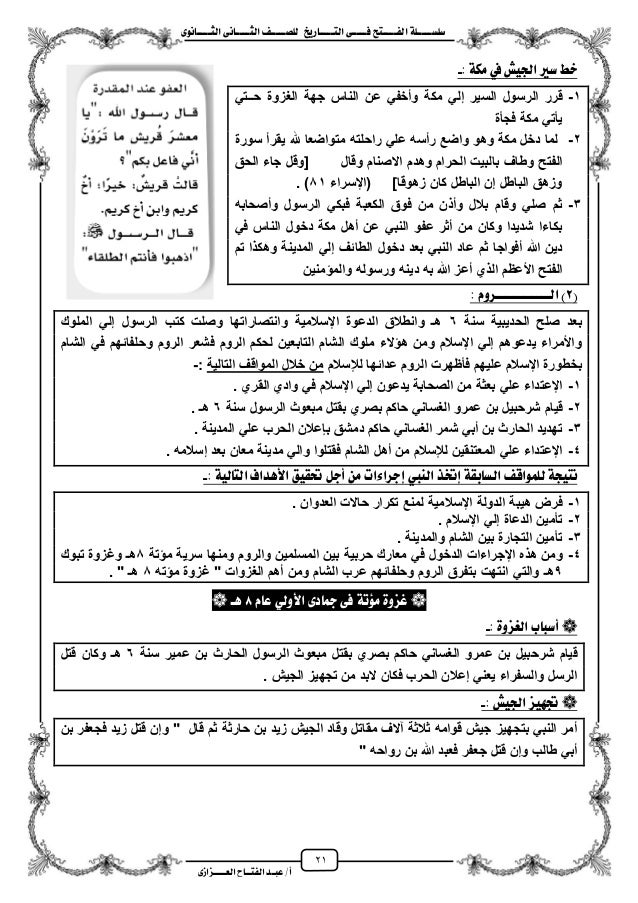 سلسلة الفتح فى التاريخ للصف الثانى الثانوى
خط سير الجيش في مكة :ـ
١- قرر الرسول السير إلي مكة وأخفي عن الناس جهة الغزوة حتي
يأتي مكة فجأة
٢- لما دخل مكة وهو واضع رأسه علي راحلته متواضعا لله يقرأ سورة
الفتح وطاف بالبيت الحرام وهدم الاصنام وقال [وقل جاء الحق
وزهق الباطل إن الباطل كان زهوقا] (الإسراء ٨١) .
٣- ثم صلي وقام بلال وأذن من فوق الكعبة فبكي الرسول وأصحابه
بكاءا شديدا وكان من أثر عفو النبي عن أهل مكة دخول الناس في
دين الله أفواجا ثم عاد النبي بعد دخول الطائف إلي المدينة وهكذا تم
الفتح الأعظم الذي أعز الله به دينه ورسوله والمؤمنين
العفو عند المقدرة
قال رسول الله : "يا
معشرَ قُريش ما تَرَوْنَ
أنّي فاعل بكم"؟
قالتْ قريشٌ: خيرًا؛ أخٌ
كريم وابن أخ كريم.
قال الرسول ﷺ:
"اذهبوا فأنتم الطلقاء"
(٢) الـــروم :
بعد صلح الحديبية سنة ٦ هـ وانطلاق الدعوة الإسلامية وانتصاراتها وصلت كتب الرسول إلي الملوك
والأمراء يدعوهم إلي الإسلام ومن هؤلاء ملوك الشام التابعين لحكم الروم فشعر الروم وحلفائهم في الشام
بخطورة الإسلام عليهم فأظهرت الروم عدائها للإسلام من خلال المواقف التالية :-
١- الإعتداء علي بعثة من الصحابة يدعون إلي الإسلام في وادي القري .
٢- قيام شرحبيل بن عمرو الغساني حاكم بصري بقتل مبعوث الرسول سنة ٦ هـ .
٣- تهديد الحارث بن أبي شمر الغساني حاكم دمشق بإعلان الحرب علي المدينة .
٤- الإعتداء علي المعتنقين للإسلام من أهل الشام فقتلوا والي مدينة معان بعد إسلامه .
نتيجة للمواقف السابقة إتخذ النبي إجراءات من أجل تحقيق الأهداف التالية :ـ
١- فرض هيبة الدولة الإسلامية لمنع تكرار حالات العدوان .
٢- تأمين الدعاة إلي الإسلام .
٣- تأمين التجارة بين الشام والمدينة .
٤- ومن هذه الإجراءات الدخول في معارك حربية بين المسلمين والروم ومنها سرية مؤتة ٨هـ وغزوة تبوك
٩هـ والتي انتهت بتفرق الروم وحلفائهم عرب الشام ومن أهم الغزوات " غزوة مؤته ٨ هـ " .
غزوة مؤتة فى جمادى الأولي عام ٨ هـ
أسباب الغزوة :ـ
قيام شرحبيل بن عمرو الغساني حاكم بصري بقتل مبعوث الرسول الحارث بن عمير سنة ٦ هـ وكان قتل
الرسل والسفراء يعني إعلان الحرب فكان لابد من تجهيز الجيش .
تجهيز الجيش :ـ
أمر النبي بتجهيز جيش قوامه ثلاثة آلاف مقاتل وقاد الجيش زيد بن حارثة ثم قال " وإن قتل زيد فجعفر بن
أبي طالب وإن قتل جعفر فعبد الله بن رواحه "
٢١
أ/ عبد الفتاح العزازى